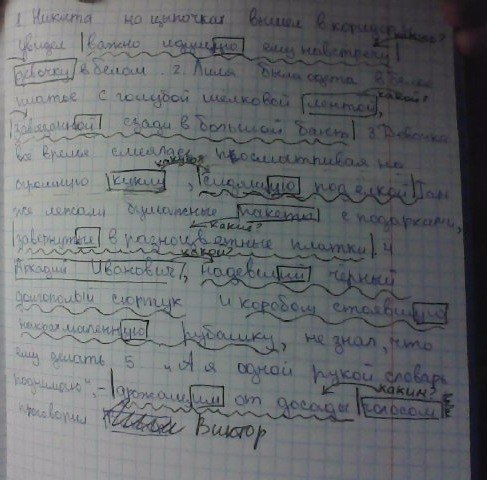 1 Никита на цыпочках вышел в коридор и
какую?
увидел важно идущую ему навстречу
девочку в белом. 2. Лиля была одета в белое
какой?
платье с голубой шелковой лентой,
завязанной сзади в большой бант 3 Девочка
все время смеялась посматривая на
какую?
огромную куклу, сидящую под ёлкой Там
же лежали бумажные пакеты с подарками,
какие?
завернутые в разноцветные платки. 4
какой?
Аркадий Иванович, надевший чёрный
долгополый сюртук и коробом стоявшую
накрахмаленную рубашку, не знал, что
ему делать 5 „А я одной рукой словарь
каким?
поднимаю", – дрожащим от досады голосом
проговорил Виктор